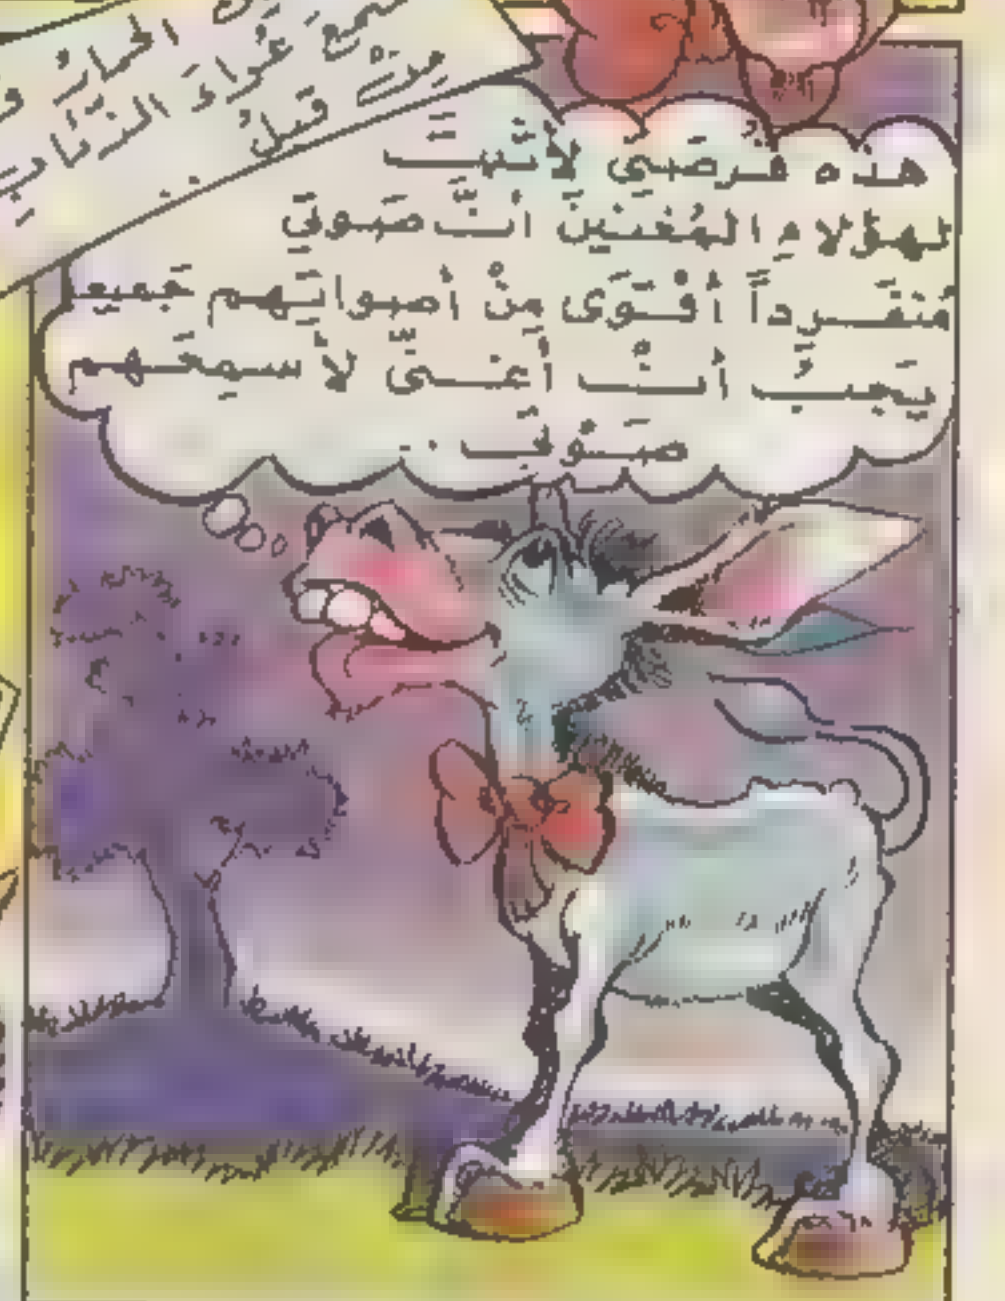 الحمارُ
عُواءَ الذئابِ
قبلُ
هذه فُرصَتي لأُثبِتَ
لهؤلاءِ المُغنينَ أنَّ صَوتي
مُنفَرِداً أقْوَى مِنْ أصواتِهم جَميعا
يَجِبُ أنْ أُغنِّيَ لأسمِعَهم
صَوْتي ..